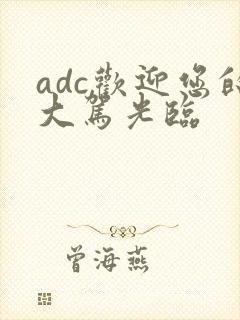 adc歡迎您的
大駕光臨
曾海燕